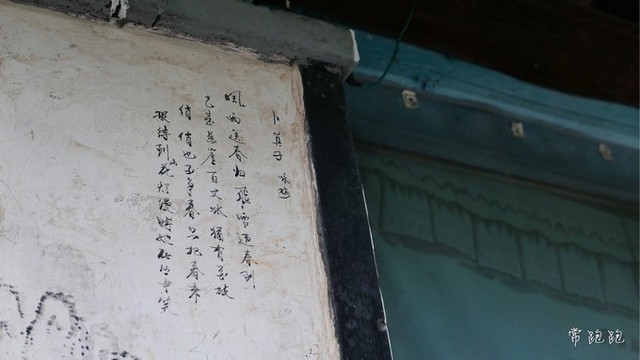 卜算子 咏梅
風雨送春归飛雪迎春到
已是悬崖百丈冰 猶有花枝
俏 俏也不争春只把春来
报待到山花烂漫時她在丛中笑
常跑跑